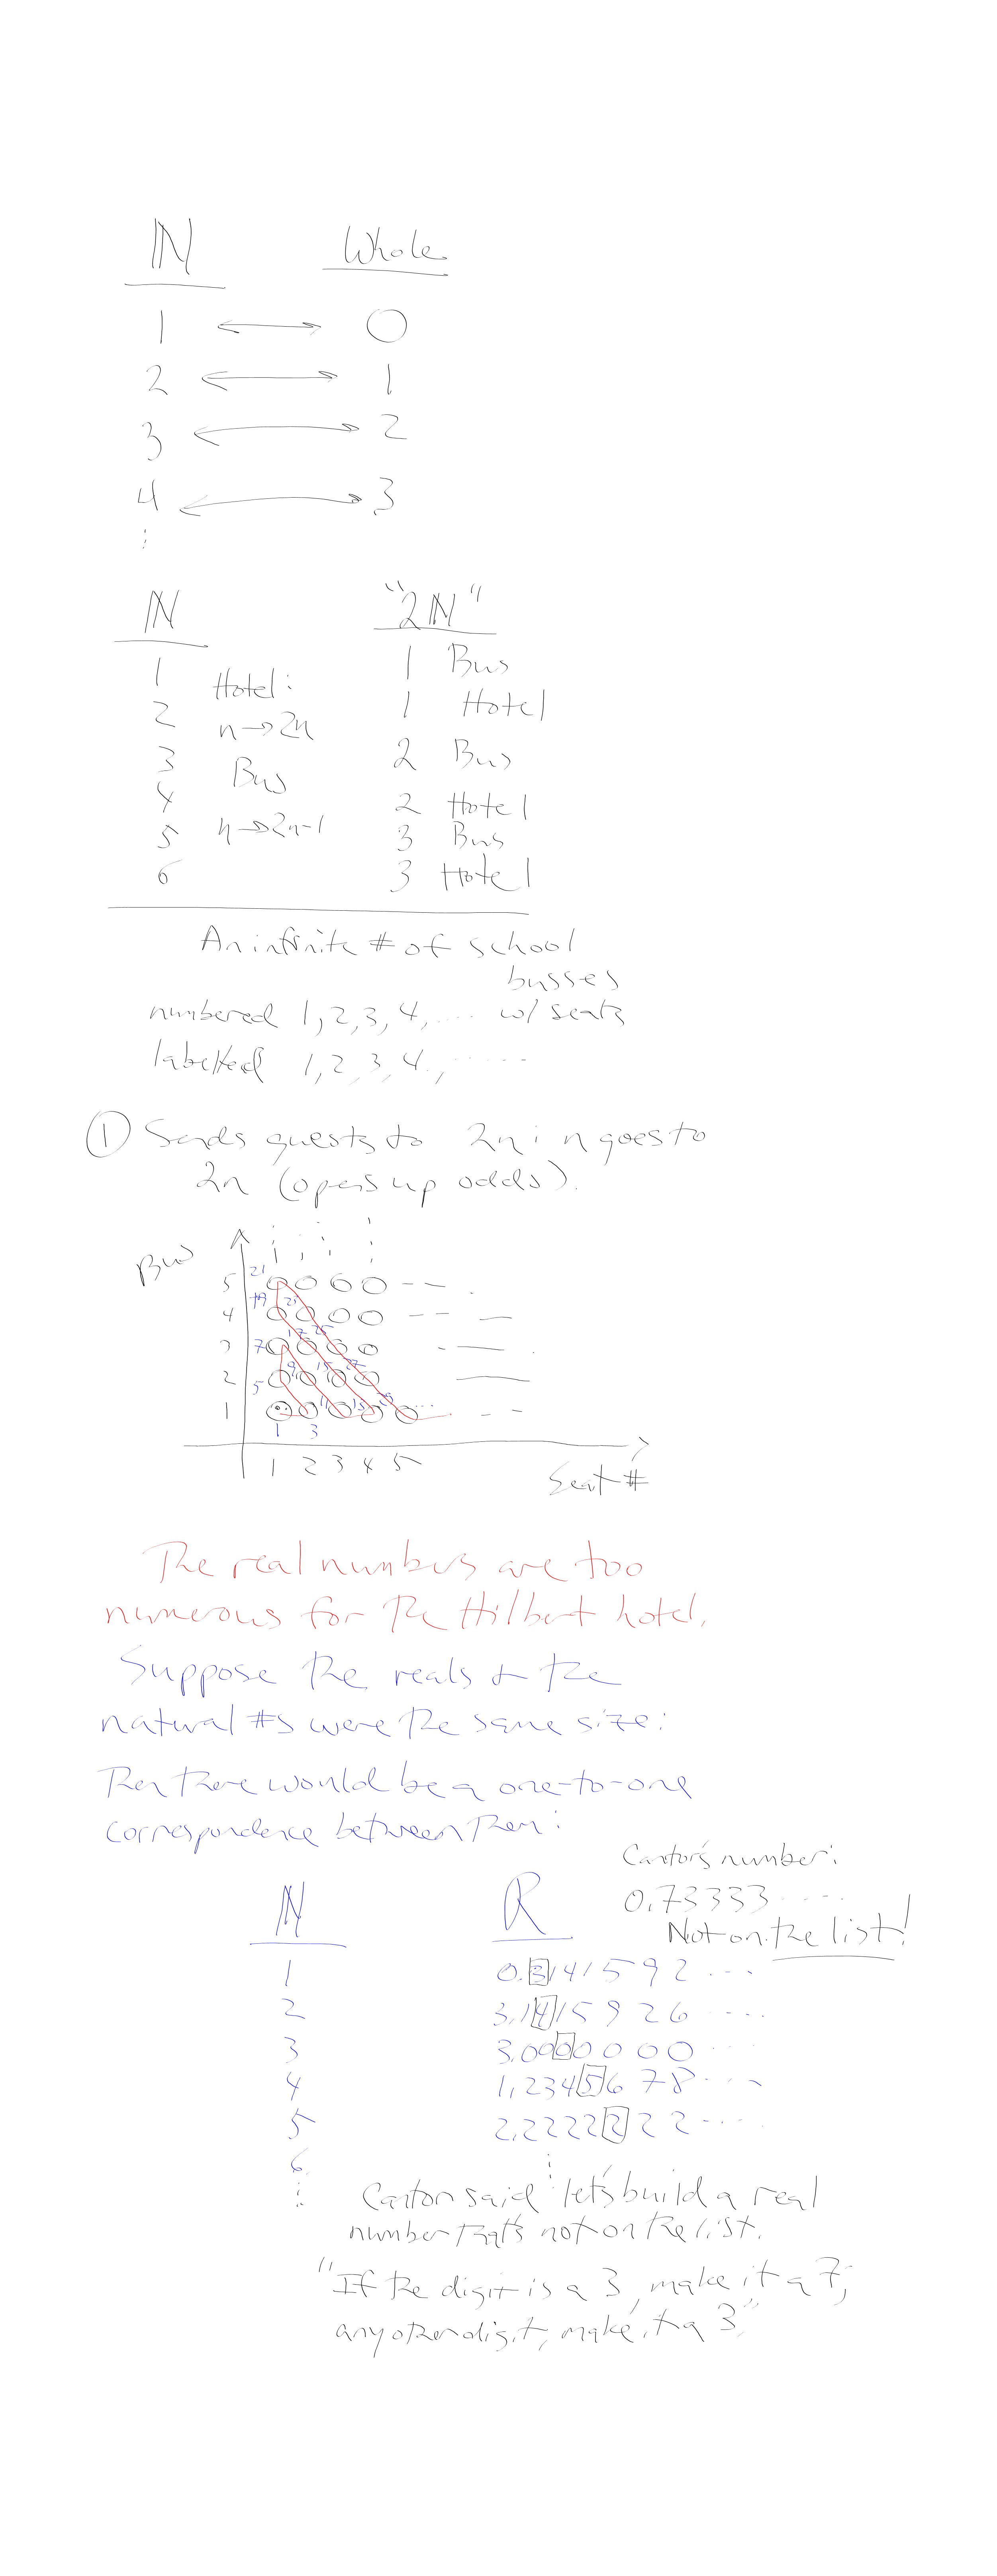 ℕ Whole
1 ↔ 0
2 ↔ 1
3 ↔ 2
4 ↔ 3
⋮
ℕ "2ℕ"
1 1 Bus
Hotel:
2 1 Hotel
n→2n
3 2 Bus
Bus
4 2 Hotel
n→2n-1
5 3 Bus
6 3 Hotel
An infinite # of school
busses
numbered 1, 2, 3, 4, .... w/ seats
labelled 1, 2, 3, 4, ......
① Sends guests to 2n: n goes to
2n (opens up odds).
Bus
5 21
4 19 23
3 7 17 25
2 5 9 15 27
1 11 13 29 ...
1 3
1 2 3 4 5
Seat #
The real numbers are too
numerous for the Hilbert hotel.
Suppose the reals & the
natural #s were the same size:
Then there would be a one-to-one
correspondence between them:
Cantor's number:
0.73333 ....
Not on the list!
ℕ ℝ
1 0.3141592 ...
2 3.1415926 ....
3 3.0000000 ...
4 1.2345678 ...
5 2.2222222 ....
6 ⋮
⋮
Cantor said "let's build a real
number that's not on the list.
"If the digit is a 3, make it a 7;
any other digit, make it a 3."